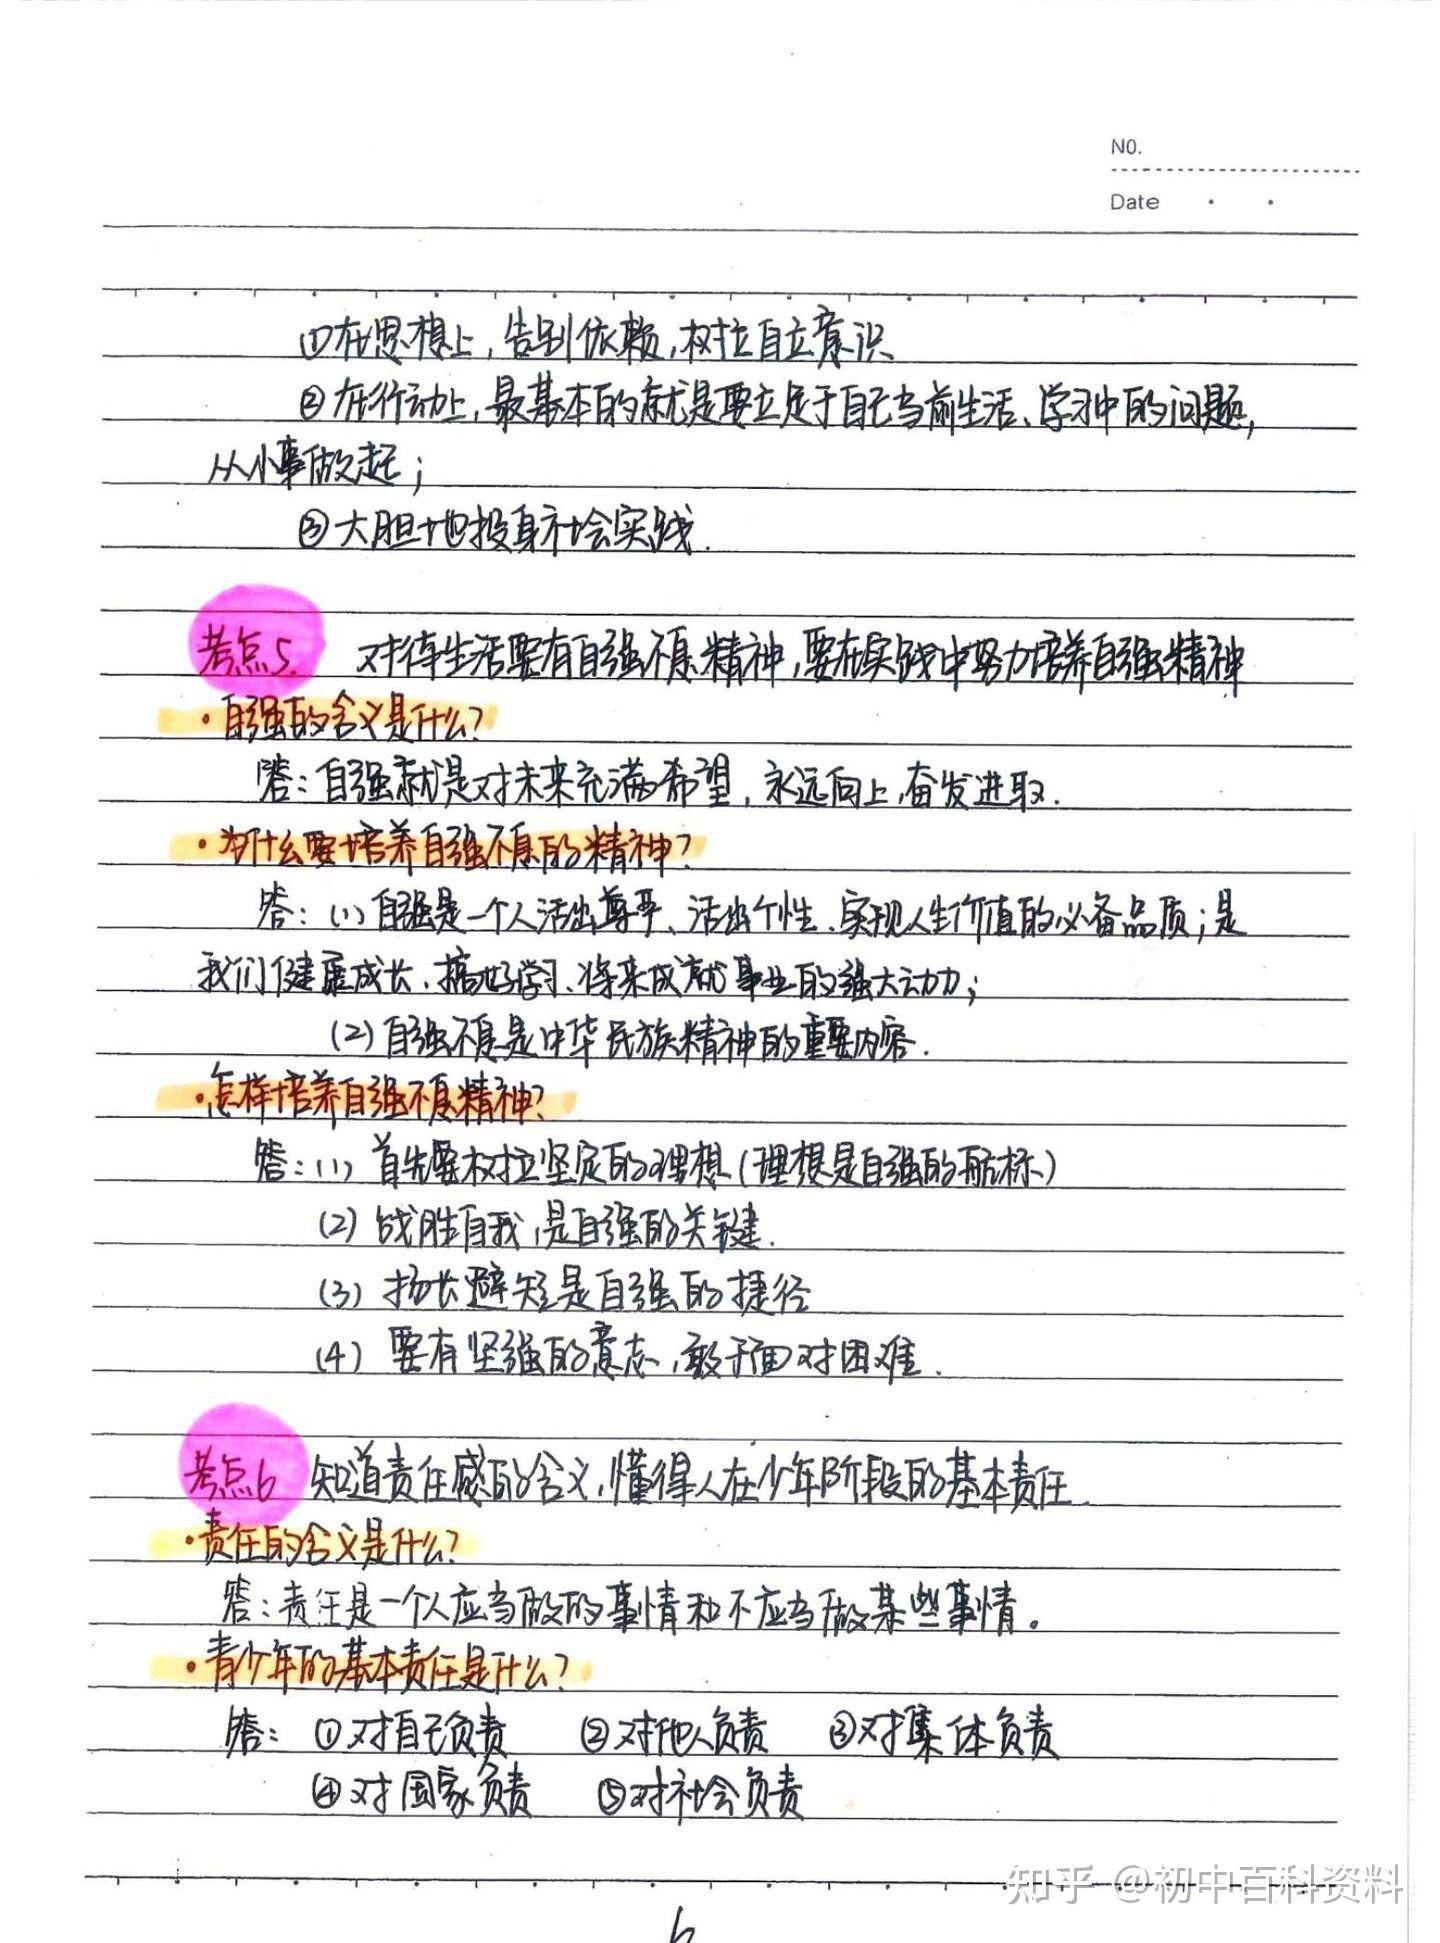 NO.
Date
①在思想上，告别依赖，树立自立意识
②在行动上，最基本的就是要立足于自己当前生活、学习中的问题，
从小事做起；
③大胆地投身社会实践.
考点5. 对待生活要有自强不息精神，要在实践中努力培养自强精神
·自强的含义是什么?
答：自强就是对未来充满希望，永远向上，奋发进取.
·为什么要培养自强不息的精神?
答：(1)自强是一个人活出尊严、活出个性、实现人生价值的必备品质；是
我们健康成长、搞好学习、将来成就事业的强大动力；
(2)自强不息是中华民族精神的重要内容.
·怎样培养自强不息精神?
答：(1) 首先要树立坚定的理想(理想是自强的航标)
(2) 战胜自我，是自强的关键.
(3) 扬长避短是自强的捷径
(4) 要有坚强的意志，敢于面对困难.
考点6 知道责任感的含义，懂得人在少年阶段的基本责任.
·责任的含义是什么?
答：责任是一个人应当做的事情和不应当做某些事情。
·青少年的基本责任是什么?
答： ①对自己负责 ②对他人负责 ③对集体负责
④对国家负责 ⑤对社会负责
知乎 @初中百科资料
6